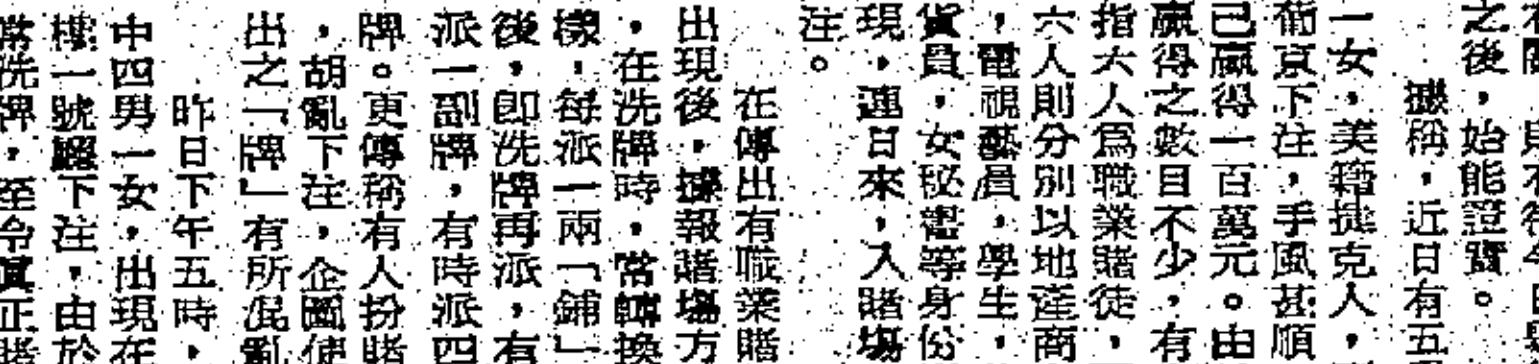 之後，始能證實。
據稱，近日有五
一女，美籍捷克人，
葡京下注，手風甚順
已贏得一百萬元。由
贏得之數目不少，有
指六人為職業賭徒，
六人則分別以地產商
，電視藝員，學生，
貨員，女秘書等身份
現，連日來，入賭場
注。
在傳出有職業賭
出現後，據報賭場方
，在洗牌時，常轉換
樣，每派一兩「鋪」
後，即洗牌再派，有
派一副牌，有時派四
牌。更傳稱有人扮賭
，胡亂下注，企圖使
出之「牌」有所混亂
昨日下午五時，
中四男一女，出現在
樓一號齷下注，由於
常洗牌，至令真正賭